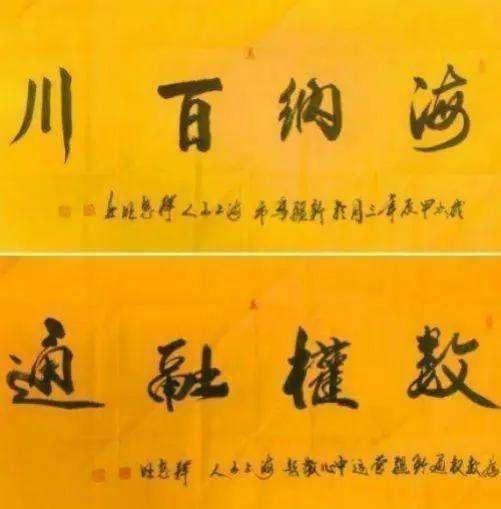 海纳百川
岁次甲辰年三月于新疆 海上山人 释慧旺书
数權融通
数权通新疆营运中心 海上山人 释慧旺